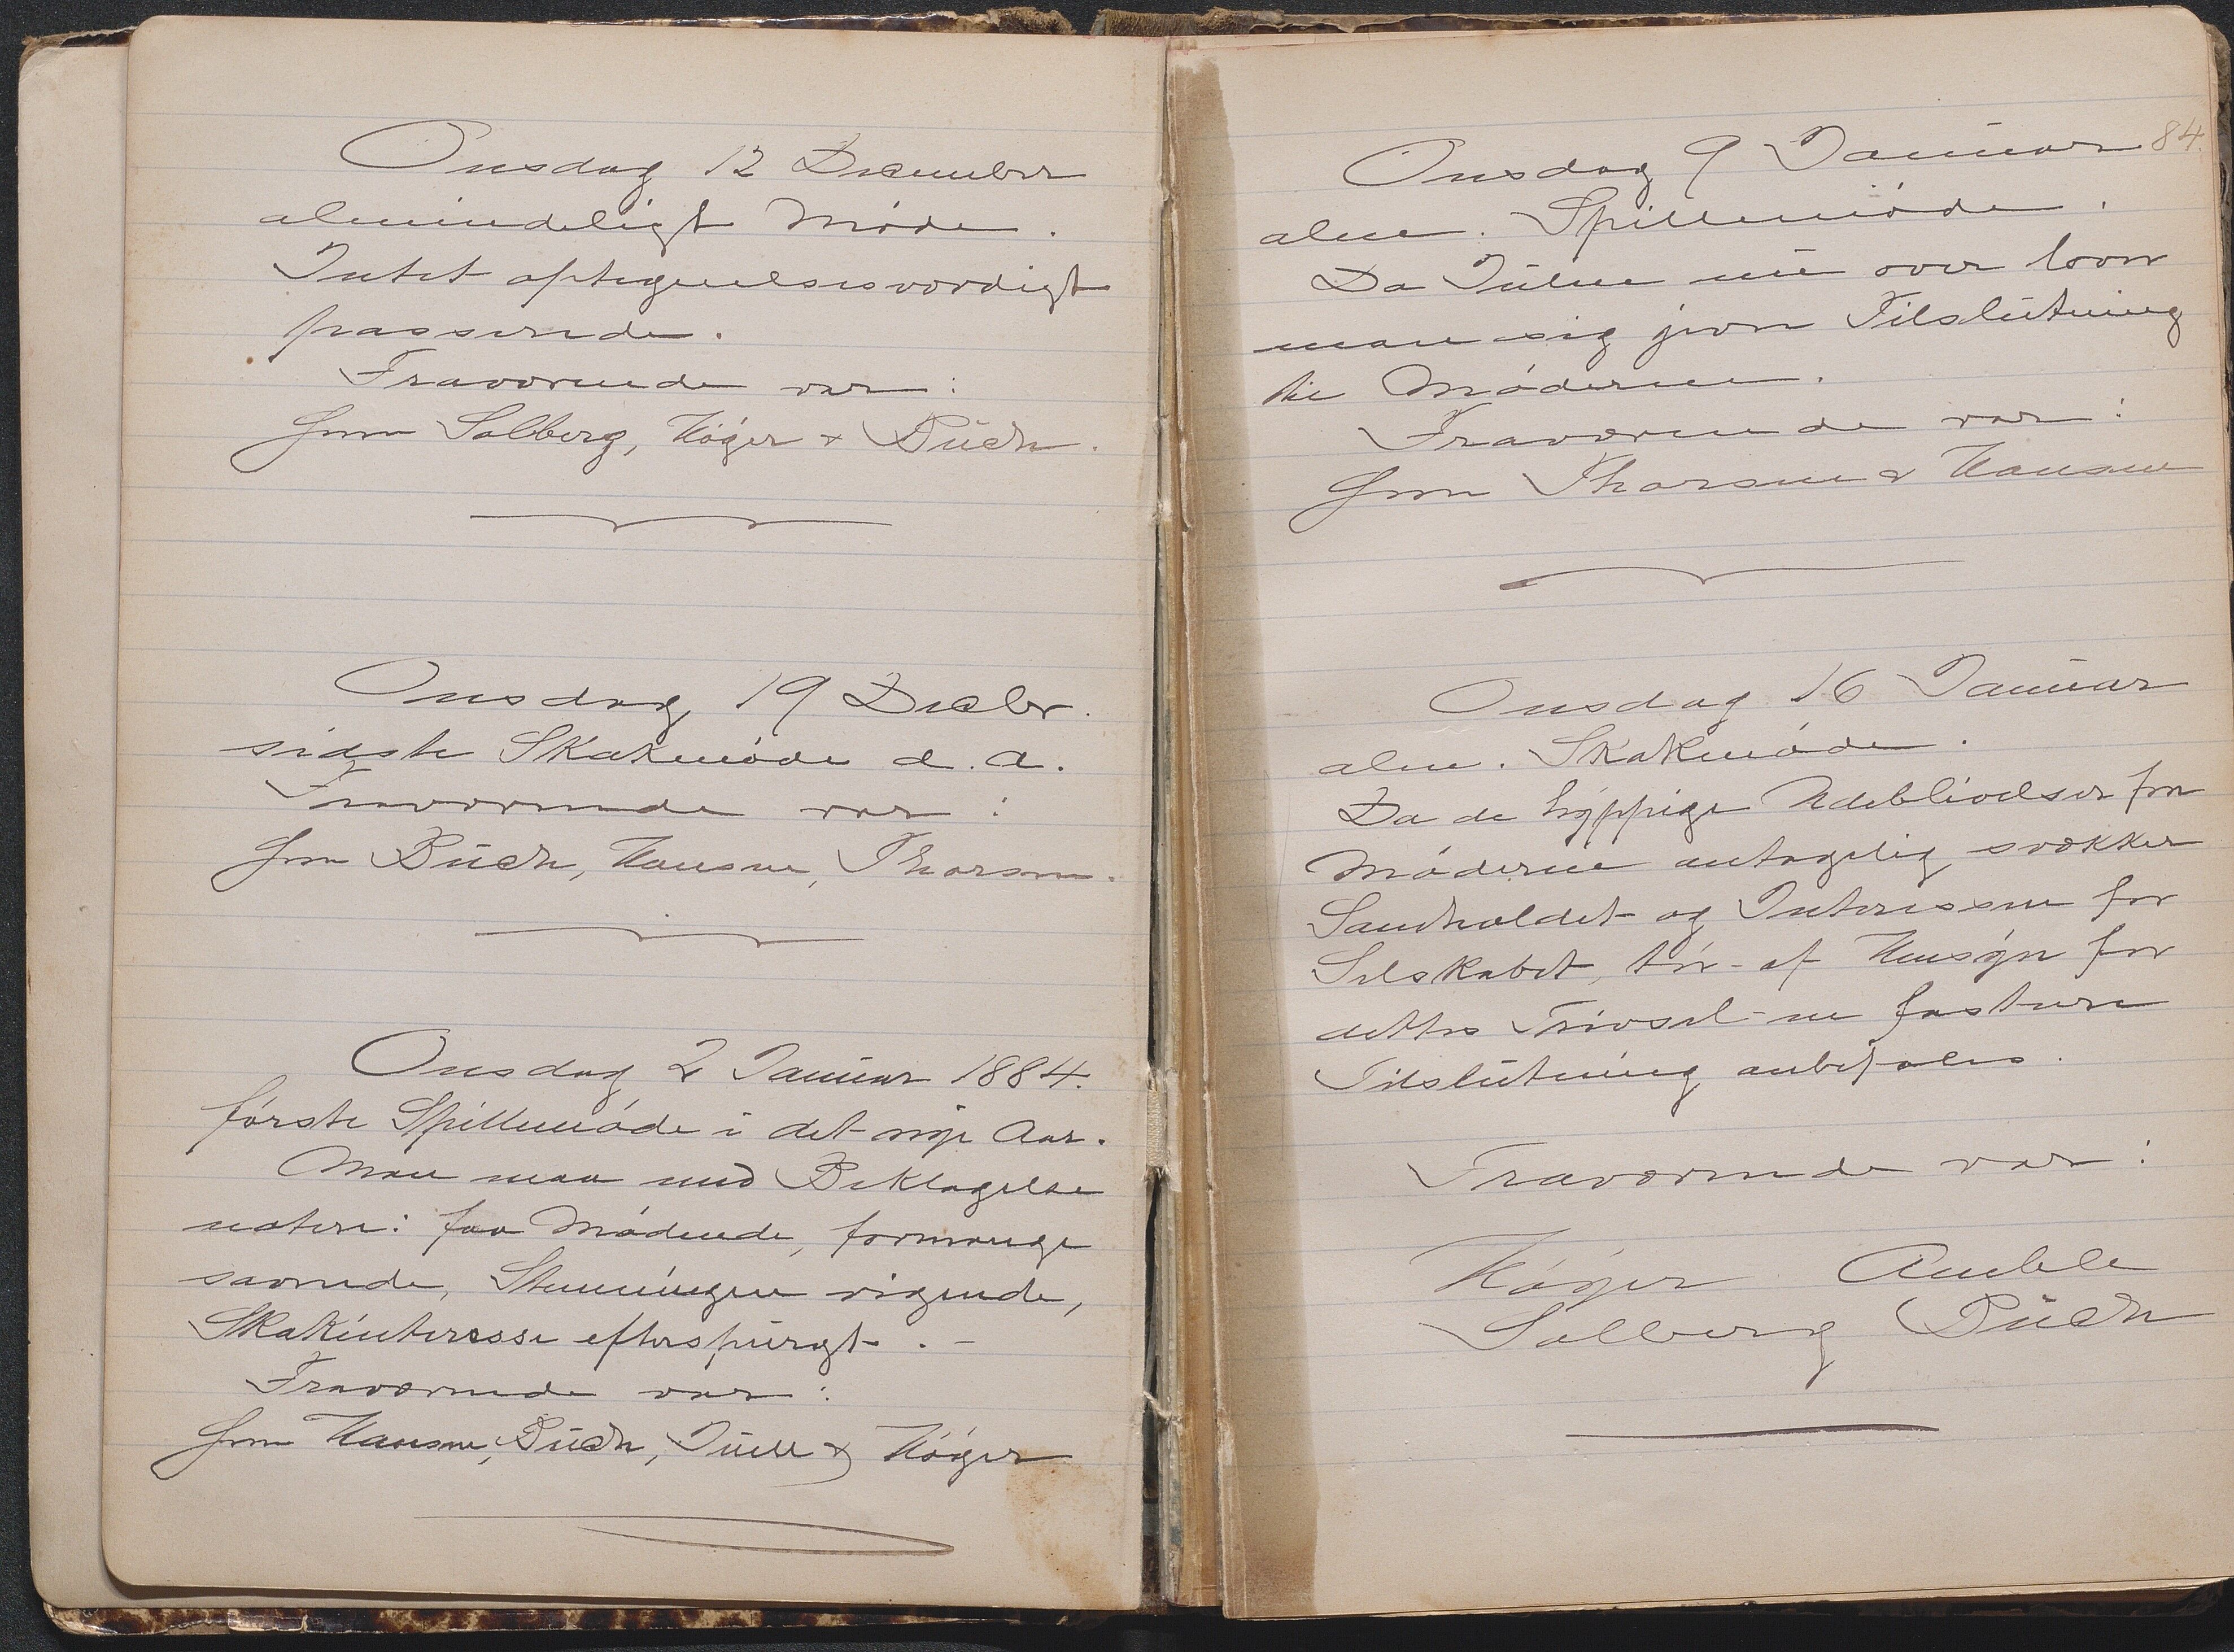 Onsdag 12 December
almindeligt Møde.
Intet optegnelsesværdigt
passerede.
Fraværende var:
Hrrn Solberg, Høyer & Büch.
Onsdag 19 Decbr.
sidste Skakmøde d. A.
Fraværende var:
Hrrn Büch, Hansen, Thorsen.
Onsdag 2 Januar 1884.
første Spillemøde i det nye Aar.
Man maa med Beklagelse
notere: faa Mødende, formange
savnede, Stemningen vigende,
Skakinteresse efterspurgt. -
Fraværende var:
Hrrn Hansen, Büch, Juell & Høyer
Onsdag 9 Januar 84.
alm. Spillemøde.
Da Julen nu er over lover
man sig jevn Tilslutning
til Møderne.
Fraværende var:
Hrrn Thorsen & Hansen
Onsdag 16 Januar
alm. Skakmøde.
Da de hyppige Udeblivelser fra
Møderne antagelig svækker
Samholdet og Interessen for
Selskabet, tør - af Hensyn for
dettes Trivsel - en fastere
Tilslutning anbefales.
Fraværende var:
Høyer Amble
Solberg Büch